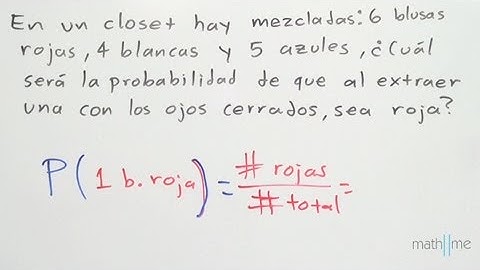 En un closet hay mezcladas: 6 blusas
rojas, 4 blancas y 5 azules, ¿Cuál
será la probabilidad de que al extraer
una con los ojos cerrados, sea roja?
P(1 b. roja) = # rojas / # total =
math||me